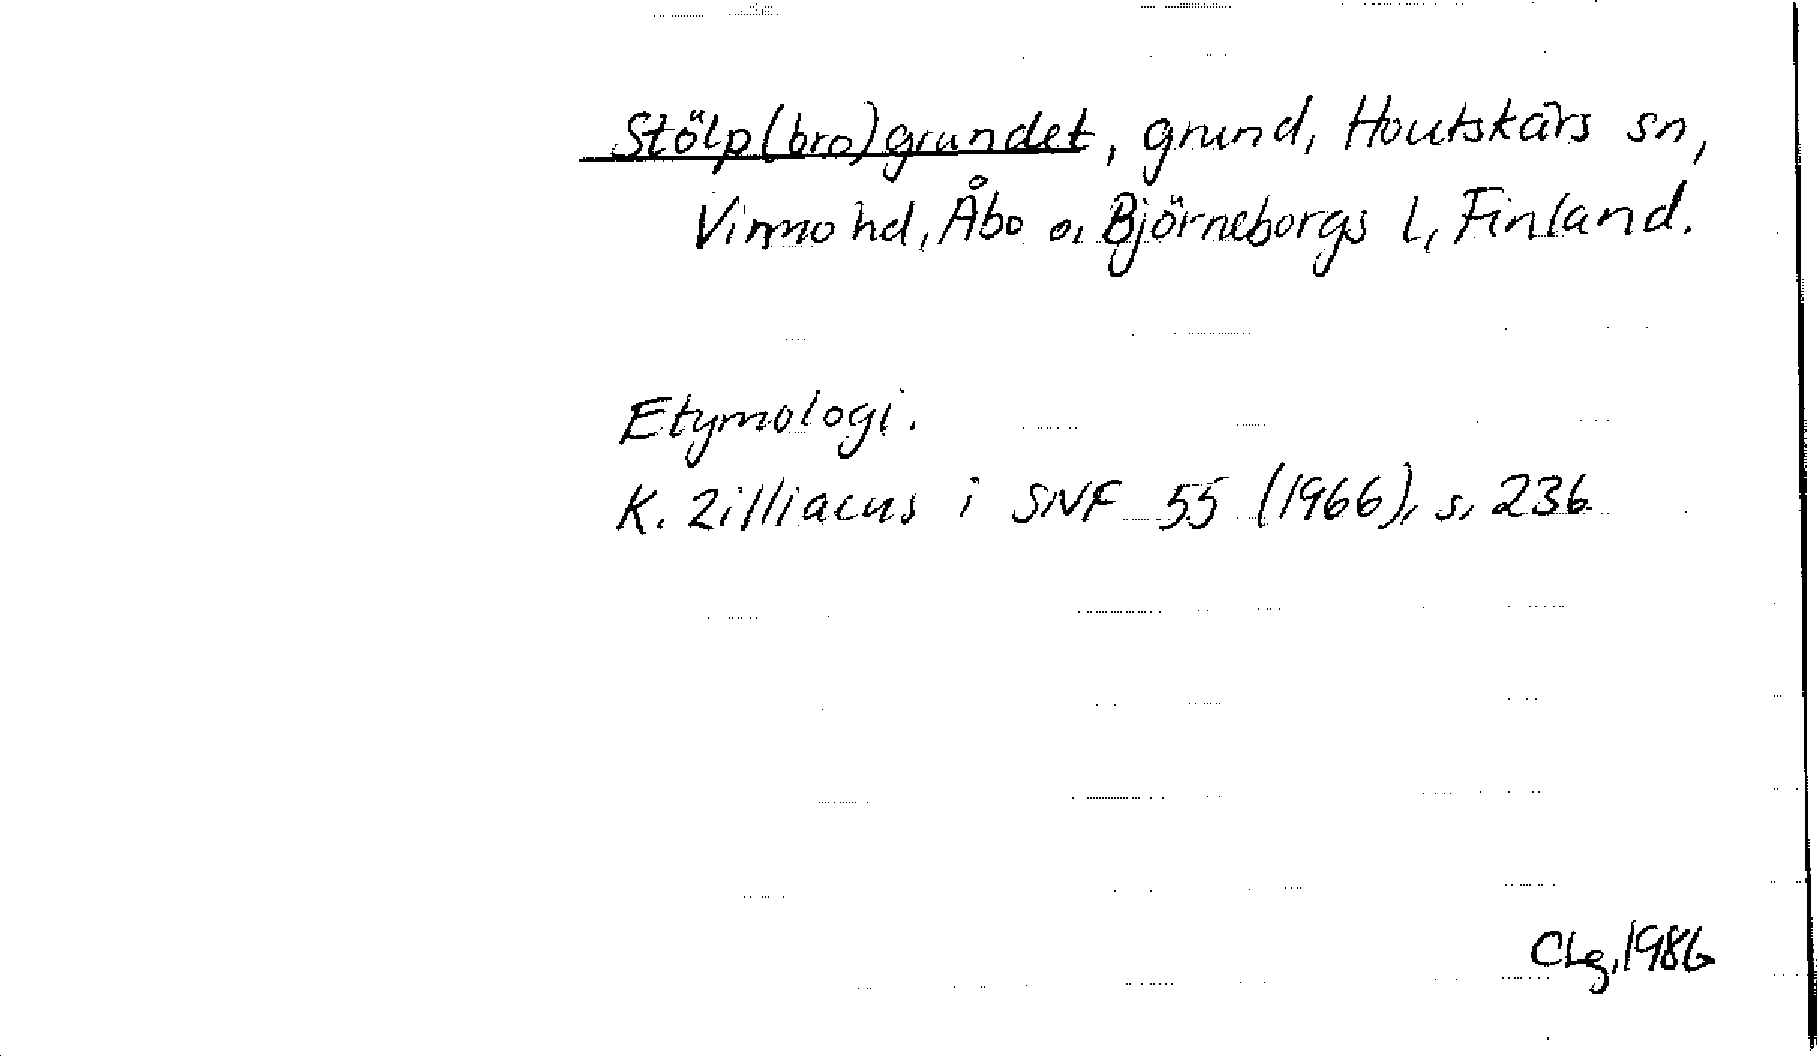 Stölp(bro)grundet, grund, Houtskärs sn,
Virmo hd, Åbo o. Björneborgs l, Finland.
Etymologi.
K. Zilliacus i SNF 55 (1966), s. 236
CLg, 1986